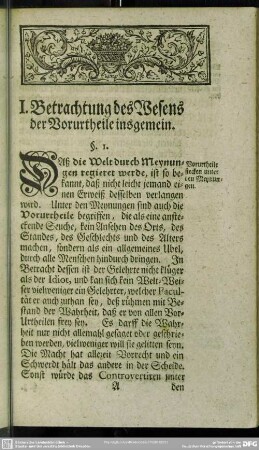 I. Betrachtung des Wesens
der Vorurtheile insgemein.
§. 1.
Daß die Welt durch Meynun-
gen regieret werde, ist so be-
kannt, daß nicht leicht jemand ei-
nen Erweiß desselben verlangen
wird. Unter den Meynungen sind auch die
Vorurtheile begriffen, die als eine anste-
ckende Seuche, kein Ansehen des Orts, des
Standes, des Geschlechts und des Alters
machen, sondern als ein allgemeines Übel,
durch alle Menschen hindurch dringen. In
Betracht dessen ist der Gelehrte nicht klüger
als der Idiot, und kan sich kein Welt-Wei-
ser vielweniger ein Gelehrter, welcher Facul-
tät er auch zuthan sey, deß rühmen mit Be-
stand der Wahrheit, daß er von allen Vor-
Urtheilen frey sey. Es darff die Wahr-
heit nur nicht allemahl gesaget oder geschrie-
ben werden, vielweniger will sie gelitten seyn.
Die Macht hat allezeit Vorrecht und ein
Schwerdt hält das andere in der Scheide.
Sonst würde das Controvertiren unter
A den
Vorurtheile
stecken unter
den Meynun-
gen.